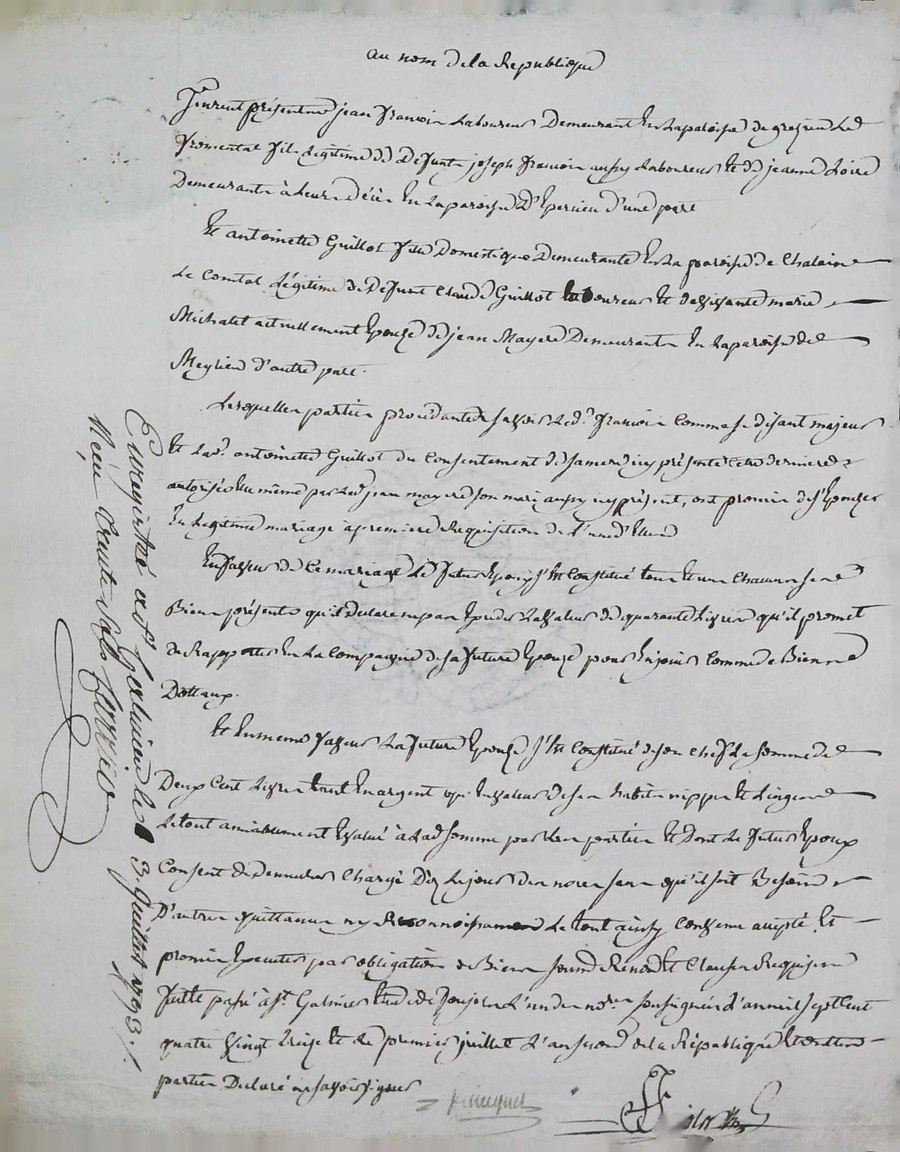 au nom de la Republique
furent présents jean francoin Laboureur Demeurant En La paroisse de grezieu Le
fromental fils Legitime de Defunt joseph francoin aussy Laboureur et de jeanne Loire
Demeurants à Leur décès En La paroisse D'Epercieu d'une part
Et antoinette Guillot fille Domestique Demeurante En La paroisse de Chalain
Le Comtal Légitime de Defunt Claude Guillot Laboureur Et de vivante marie
Michalet actuellement Epouze de jean Mayere Demeurants En La paroisse de
Meylieu d'autre part
Lesquelles parties procédantes sçavoir Led. francoin Comme se disant majeur
Et Lad. antoinette Guillot du Consentement de sa mere icy présente cette derniere
autorisée Elle même par Led. jean mayere son mari aussy icy présent, ont promis de s'Epouzer
En Legitime mariage a premiere Requisition de L'un d'Eux
En faveur de Ce mariage Le futur Epoux s'Est Constitué tous Et un Chacun ses
Biens présents qu'il déclare nepas Exceder La valeur de quarante Livres qu'il promet
de Rapporter En La Compagnie de sa future Epouze pour En jouir Comme de Biens
Dottaux.
Et En meme faveur La future Epouze s'Est Constitué de son Chef La somme de
Deux Cent Livres tant En argent qu'En valeur de ses habits nippes Et Linges
Le tout amiablement Evalué à Lad. somme par Les parties Et Dont Le futur Epoux
Consent de Demeurer Chargé Dès Le jour des noces sans qu'il soit Besoin
D'autre quittance ny Reconnoissance Le tout ainsy Convenu accepté Et
promis Executer par obligation de Biens soumis Renonc. Et Clauses Requises
fait Et passé à St. Galmier Etude de Jourjon L'un des nores. soussignés L'an mil sept Cent
quatre vingt treize Et Le premier juillet L'an second de la République Et ont Les
parties Declaré ne savoir signer
Enregistré à St Galmier le 3. juillet 1793./.
Reçu trente sols